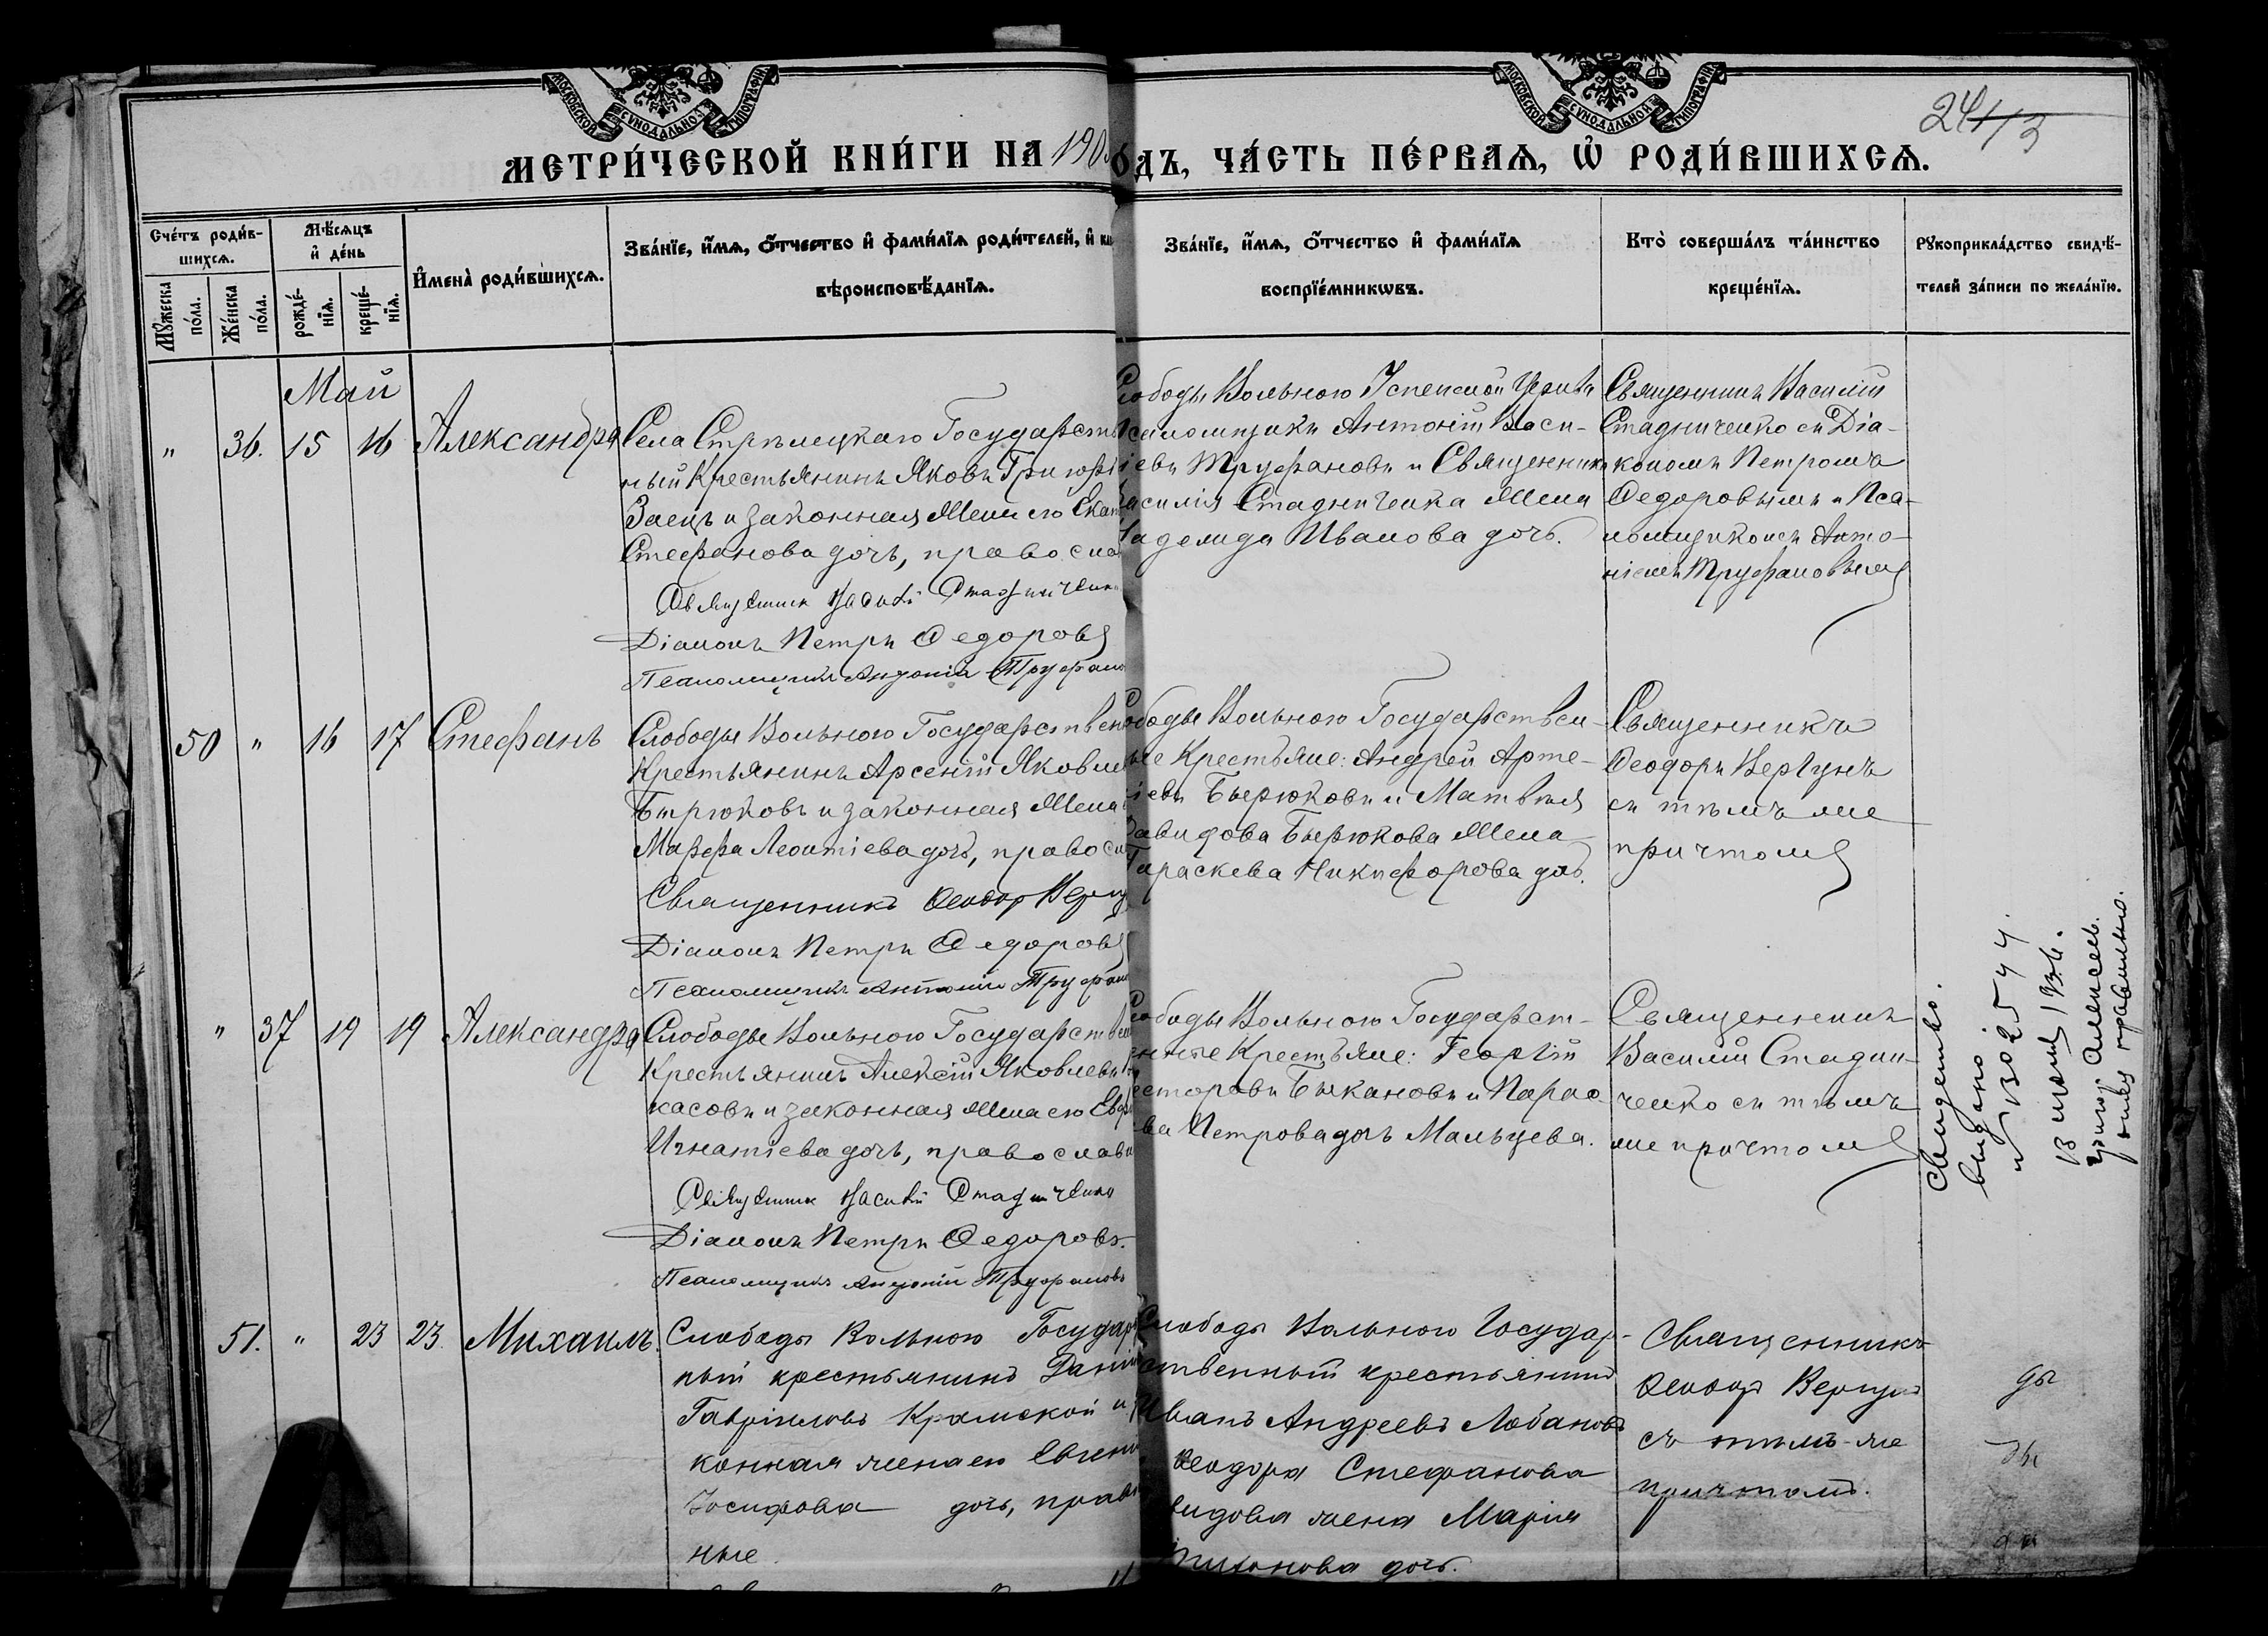 МОСКОВСКОЙ СУНОДАЛЬНОЙ ТИПОГРАФІИ
МОСКОВСКОЙ СУНОДАЛЬНОЙ ТИПОГРАФІИ
24
МЕТРИ́ЧЕСКОЙ КНИ́ГИ НА 190
ОДЪ, ЧА́СТЬ ПЕ́РВАѦ, Ѡ҆ РОДИ́ВШИХСѦ.
Сче́тъ роди́в-
шихсѧ.
Мꙋ́жеска по́ла.
Же́нска по́ла.
Мѣ́сѧцъ
и҆ де́нь
рожде́-нїѧ.
креще́-нїѧ.
И҆мена̀ роди́вшихсѧ.
Зва́нїе, и҆́мѧ, ѻ҆́тчество и҆ фами́лїѧ роди́телей, и҆
вѣроисповѣ́данїѧ.
Зва́нїе, и҆́мѧ, ѻ҆́тчество и҆ фами́лїѧ
воспрїе́мникѡвъ.
Кто̀ соверша́лъ та́инство
креще́нїѧ.
Рꙋкоприкла́дство свидѣ́-
телей за́писи по жела́нїю.
Май
" 36. 15 16 Александра
Села Стрѣлецкаго Государств
ный Крестьянинъ Яковъ Григорі
Заецъ и законная Жена его Екат
Стефанова дочь, правосла
Священникъ Василій Стадниченко
Діаконъ Петръ Ѳедоровъ
Псаломщикъ Антоній Труфано
Слободы Вольного Успенской Церкви
Псаломщикъ Антоній Васи-
іевъ Труфановъ и Священника
асилія Стадниченка Жена
Иванова дочь.
Священникъ Василій
Стадниченко съ Діа-
кономъ Петромъ
Ѳедоровымъ и Пса-
ломщикомъ Анто-
ніемъ Труфановымъ
50 " 16 17 Стефанъ
Слободы Вольного Государствен
Крестьянинъ Арсеній Яковле
Бирюковъ и законная Жена
Марфа Леонтіева дочь, правосл
Священникъ Ѳеодоръ Вергу
Діаконъ Петръ Ѳедоровъ
Псаломщикъ Антоній Труфано
ободы Вольного Государствен-
ые Крестьяне: Андрей Арте-
іевъ Бирюковъ и Матвѣя
авидова Бирюкова Жена
Параскева Никифорова дочь.
Священникъ
Ѳеодоръ Вергунъ
съ тѣмъ же
причтомъ
" 37 19 19 Александра
Слободы Вольного Государствен
Крестьянинъ Алексій Яковлевъ
касовъ и законная Жена его Евд
Игнатіева дочь, православн
Священникъ Василій Стадниченко
Діаконъ Петръ Ѳедоровъ.
Псаломщикъ Антоній Труфановъ
ободы Вольного Государст-
енные Крестьяне: Георгій
есторовъ Быкановъ и Параск
ва Петрова дочь Мальцева.
Священникъ
Василій Стадни-
ченко съ тѣмъ
же причтомъ
Свидетьво.
выдано
13
Алексеев.
правильно.
51. " 23 23. Михаилъ.
Слободы Вольного Государ
ный крестьянинъ Даніи
Гавріиловъ Крамской и з
конная жена его Евгені
Іосифова дочь, право
ные.
Слободы Вольного Государ-
ственный крестьянинъ
Иванъ Андреевъ Лобановъ
Ѳеодора Стефанова
видова жена Марія
Тихонова дочь.
Священникъ
Ѳеодоръ Вергунъ
съ тѣмъ-же
причтомъ.